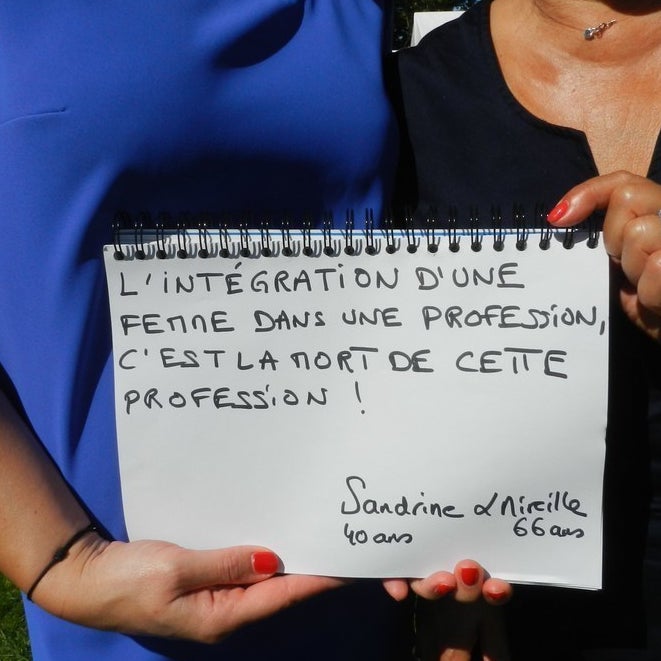 L'INTÉGRATION D'UNE
FEMME DANS UNE PROFESSION,
C'EST LA MORT DE CETTE
PROFESSION !
Sandrine & Mireille
40 ans 66 ans